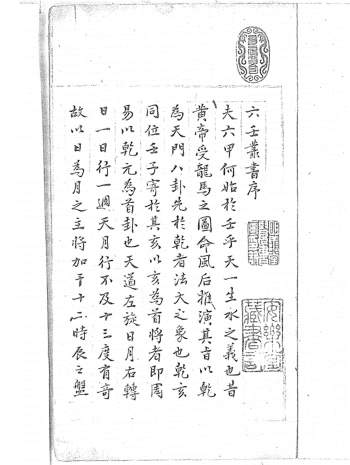 六壬叢書序
夫六甲何始於壬乎天一生水之義也昔
黃帝受龍馬之圖命風后推演其旨以乾
為天門八卦先於乾者法天之象也乾亥
同位壬子寄於其亥以亥為首將者即周
易以乾元為首卦也天道左旋日月右轉
日一日行一週天月行不及十三度有奇
故以日為月之主將加于十二時辰之盤
藏書